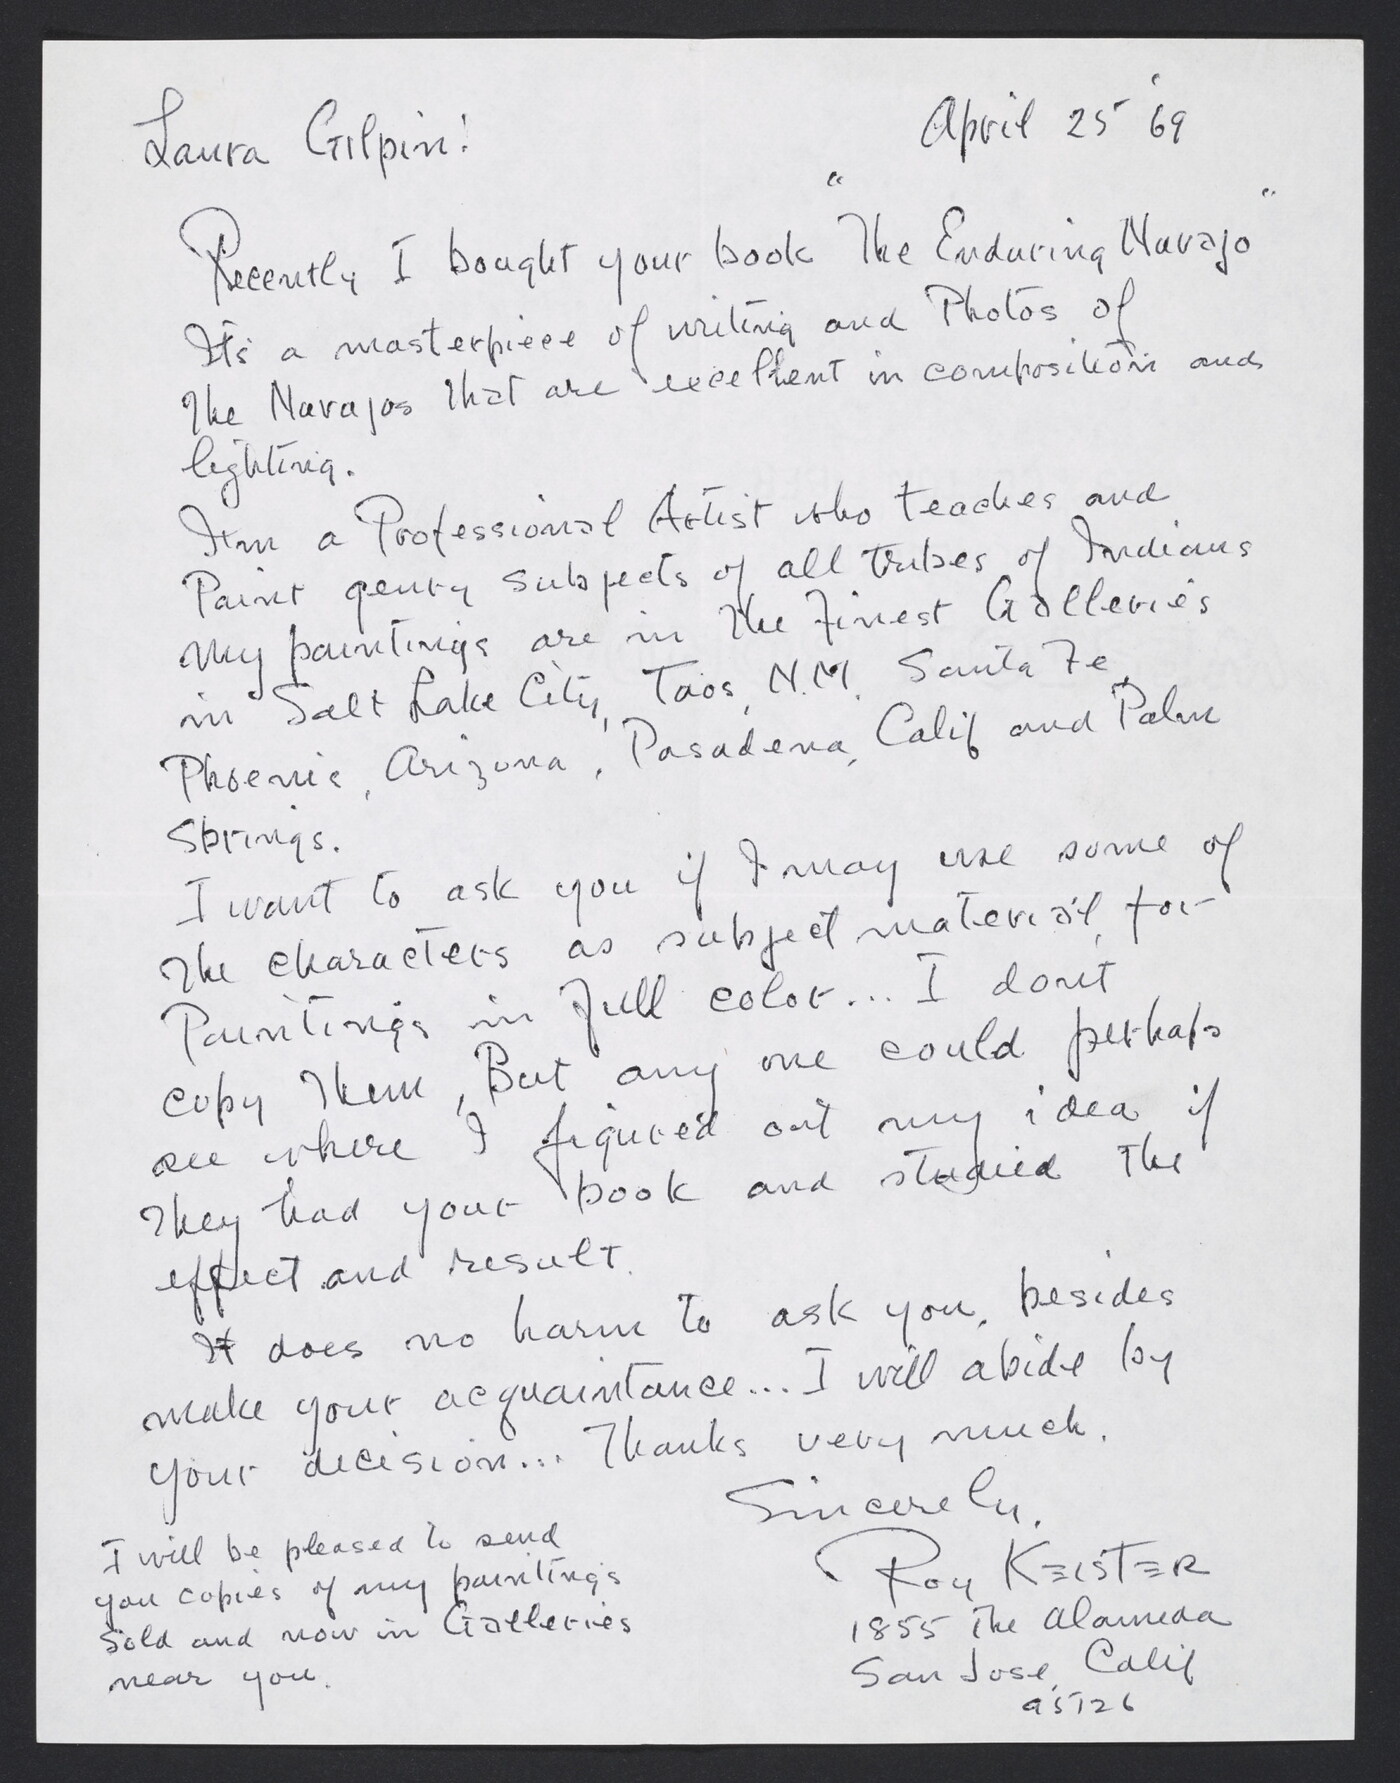 April 25 '69
Laura Gilpin!
Recently I bought your book "The Enduring Navajo"
It's a masterpiece of writing and Photos of
the Navajos that are excellent in composition and
lighting.
I'm a Professional Artist who teaches and
Paint genry subjects of all tribes of Indians
My paintings are in the Finest Galleries
in Salt Lake City, Taos, N.M. Santa Fe,
Phoenix, Arizona, Pasadena, Calif and Palm
Springs.
I want to ask you if I may use some of
the characters as subject material, for
Paintings in full color... I dont
copy them, But any one could perhaps
see where I figured out my idea if
they had your book and studied the
effect and result.
It does no harm to ask you, besides
make your acquaintance... I will abide by
your decision... Thanks very much.
Sincerely,
Roy Keister
1855 The Alameda
San Jose, Calif
95126
I will be pleased to send
you copies of my paintings
sold and now in Galleries
near you.